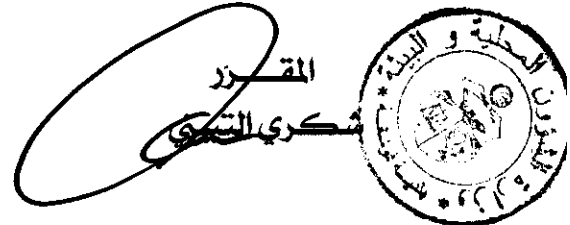 المقـــرر
شكري التيسي
وزارة الشؤون المحلية و البيئة